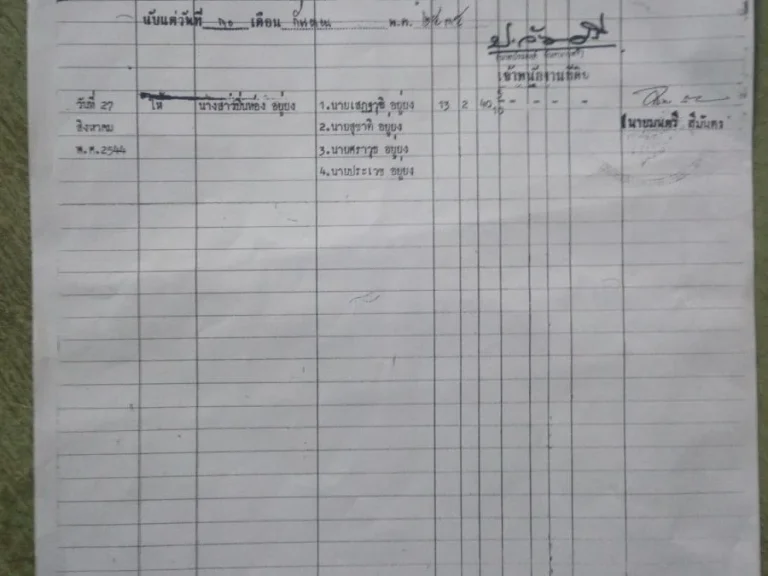 นับแต่วันที่ ๓๐ เดือน กันยายน พ.ศ.
เจ้าพนักงานที่ดิน
วันที่ 27 ให้ นางสาวยืนทอง อยู่ยง 1.นายเสฏฐวุฒิ อยู่ยง 13 2 40 - - - -
สิงหาคม 2.นายสุชาติ อยู่ยง (นายมนตรี สีมันตร
พ.ศ.2544 3.นายศราวุธ อยู่ยง
4.นายประเวช อยู่ยง